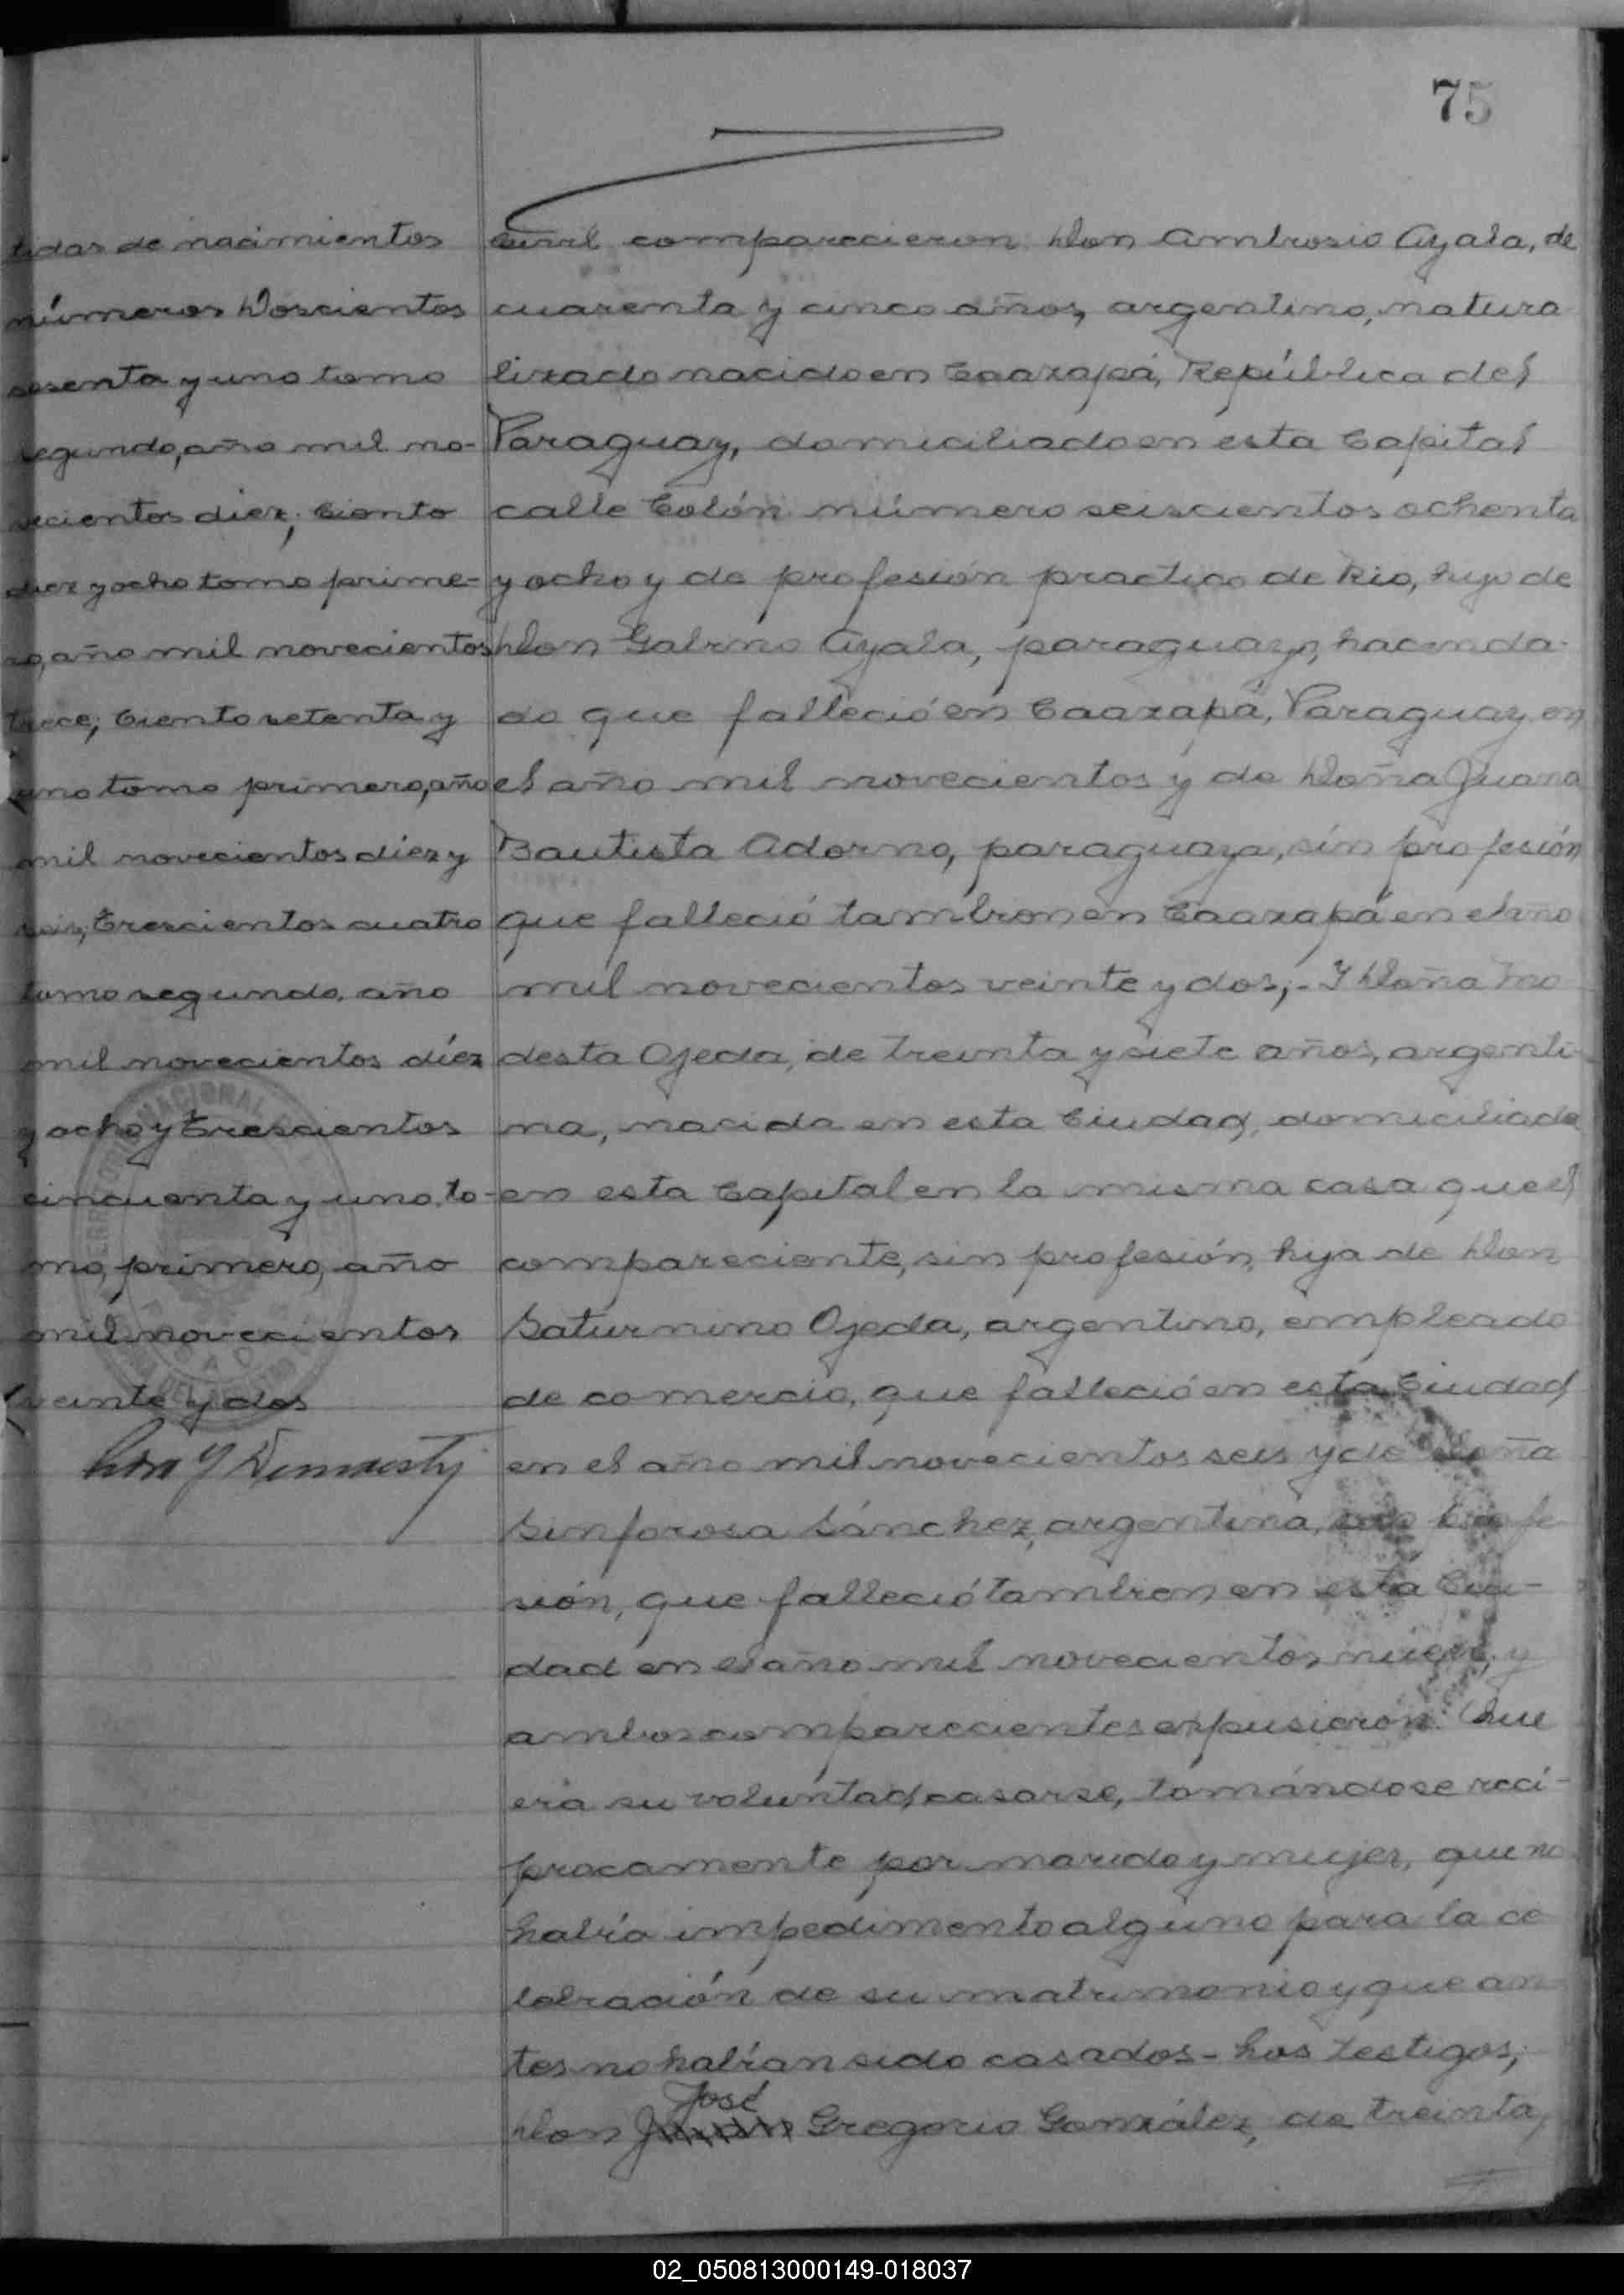 75
tidas de nacimientos
números Doscientos
sesenta y uno tomo
segundo, año mil no-
vecientos diez; Ciento
diez y ocho tomo prime-
ro, año mil novecientos
trece; Ciento setenta y
uno tomo primero, año
mil novecientos diez y
seis; Trescientos cuatro
tomo segundo, año
mil novecientos diez
y ocho y Trescientos
cincuenta y uno to-
mo, primero, año
mil novecientos
veinte y dos
civil comparecieron: Don Ambrosio Ayala, de
cuarenta y cinco años, argentino, natura
lizado nacido en Caazapá, República del
Paraguay, domiciliado en esta Capital
calle Colón número seiscientos ochenta
y ocho y de profesión practico de Rio, hijo de
Don Galvino Ayala, paraguayo, hacenda-
do que falleció en Caazapá, Paraguay en
el año mil novecientos y de Doña Juana
Bautista Adorno, paraguaya, sin profesión
que falleció tambien en Caazapá en el año
mil novecientos veinte y dos;- Y Doña Mo
desta Ojeda, de treinta y siete años, argenti-
na, nacida en esta Ciudad, domiciliada
en esta Capital en la misma casa que el
compareciente, sin profesión, hija de Don
Saturnino Ojeda, argentino, empleado
de comercio, que falleció en esta Ciudad
en el año mil novecientos seis y de Doña
Sinforosa Sánchez, argentina, sin profe
sión, que falleció tambien en esta Ciu-
dad en el año mil novecientos nueve, y
ambos comparecientes expusieron: Que
era su voluntad, casarse, tomándose recí-
procamente por marido y mujer, que no
había impedimento alguno para la ce
lebración de su matrimonio y que an-
tes no habían sido casados- Los testigos,
José
Don Juan Gregorio González, de treinta,
02_050813000149-018037